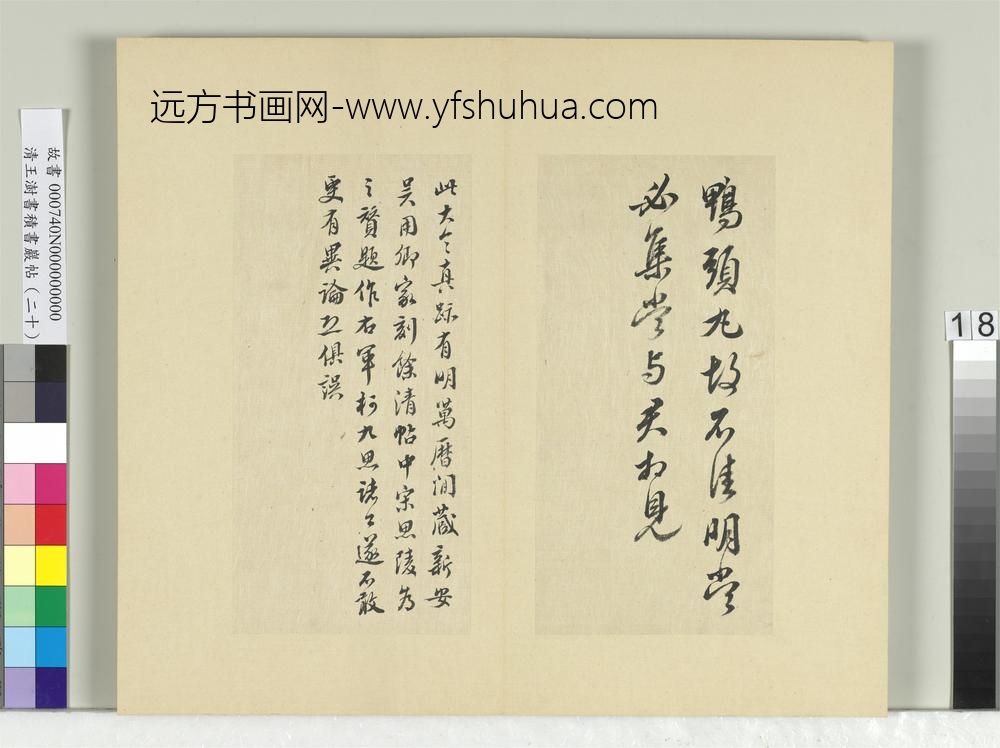 远方书画网-www.yfshuhua.com
鴨頭丸故不佳明當
必集當与君相見
此大令真跡有明萬曆間藏新安
吴用卿家刻餘清帖中宋思陵為
之贊題作右軍柯九思諸公遂不敢
更有異論並俱誤
故書 000740N000000000
清王澍書積書巖帖(二十)
18